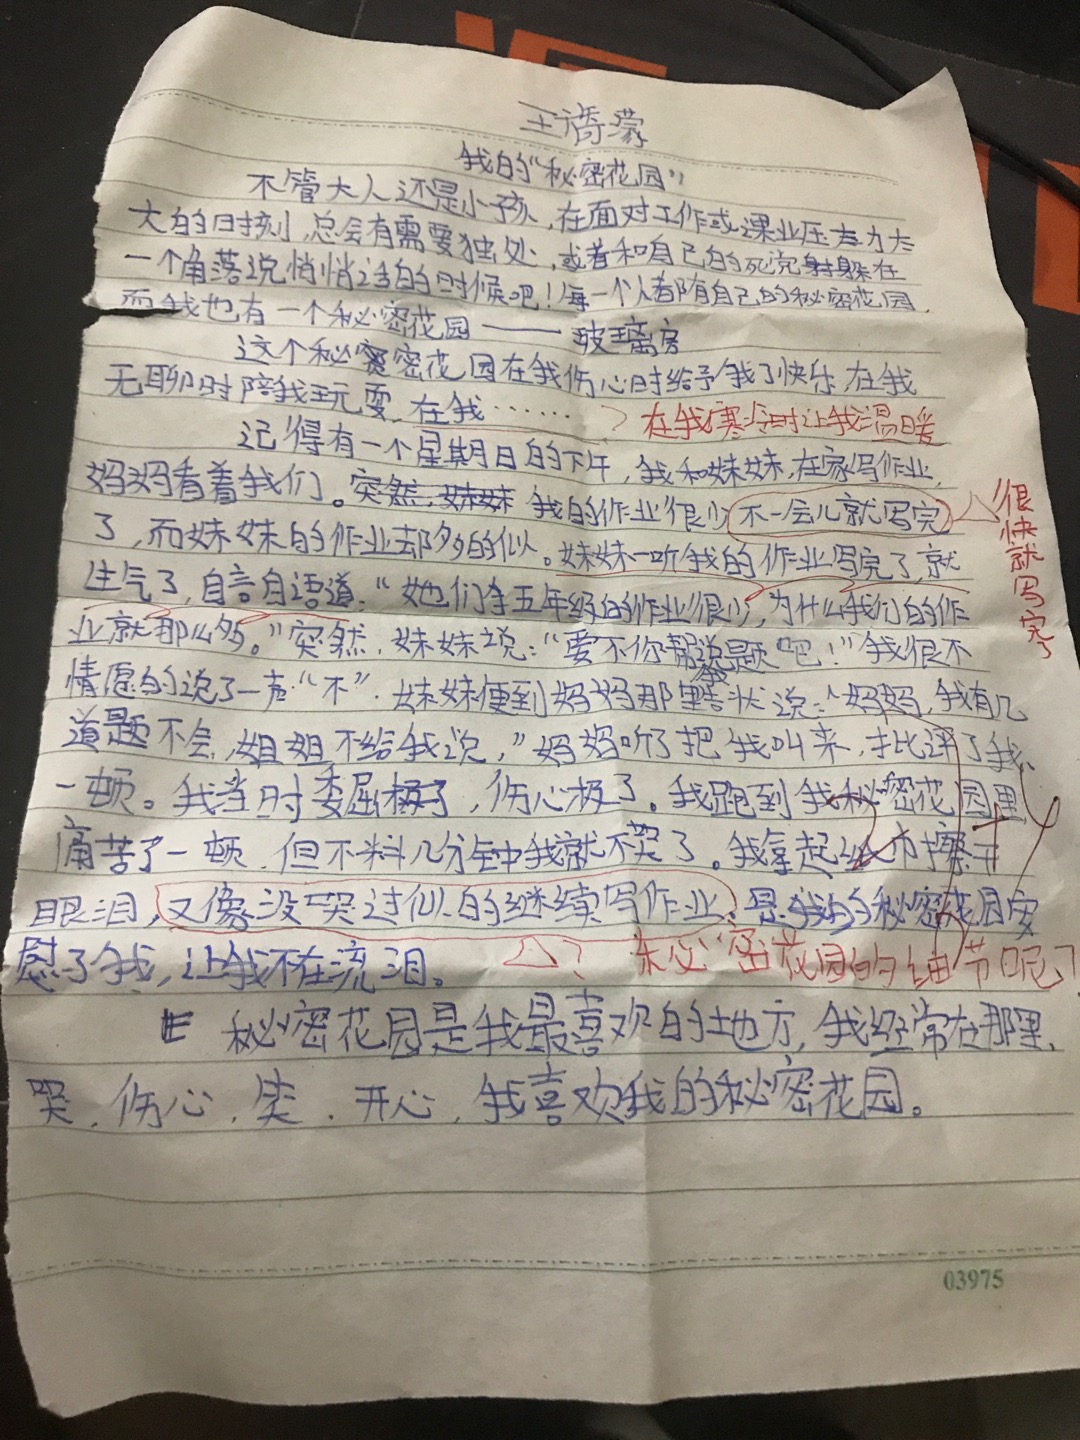 王 濛
我的“秘密花园”
不管大人还是小孩，在面对工作或课业压力
大的时刻，总会有需要独处，或者和自己的死党躲在
一个角落说悄悄话的时候吧！每一个人都有自己的秘密花园，
而我也有一个秘密花园——玻璃房
这个秘密花园在我伤心时给予我了快乐，在我
无聊时陪我玩耍，在我…… 在我寒冷时让我温暖
记得有一个星期日的下午，我和妹妹，在家写作业，
妈妈看着我们。突然，妹妹 我的作业很少，不一会儿就写完 很快就写完了
了，而妹妹的作业却多的似。妹妹一听我的作业写完了，就
生气了，自言自语道：“她们今五年级的作业很少，为什么我们的作
业就那么多。”突然，妹妹说：“要不你帮我说题吧！”我很不
情愿的说了一声“不”，妹妹便到妈妈那里告状说：“妈妈，我有几
道题不会，姐姐不给我说，”妈妈听了把我叫来，批评了我
一顿。我当时委屈极了，伤心极了。我跑到我秘密花园里
痛苦了一顿，但不料几分钟我就不哭了。我拿起 擦干
眼泪，又像没哭过似的继续写作业，是我的秘密花园安
慰了我，让我不在流泪。 ？ 密花园的细节呢？
秘密花园是我最喜欢的地方，我经常在那里，
哭，伤心，笑，开心，我喜欢我的秘密花园。
03975